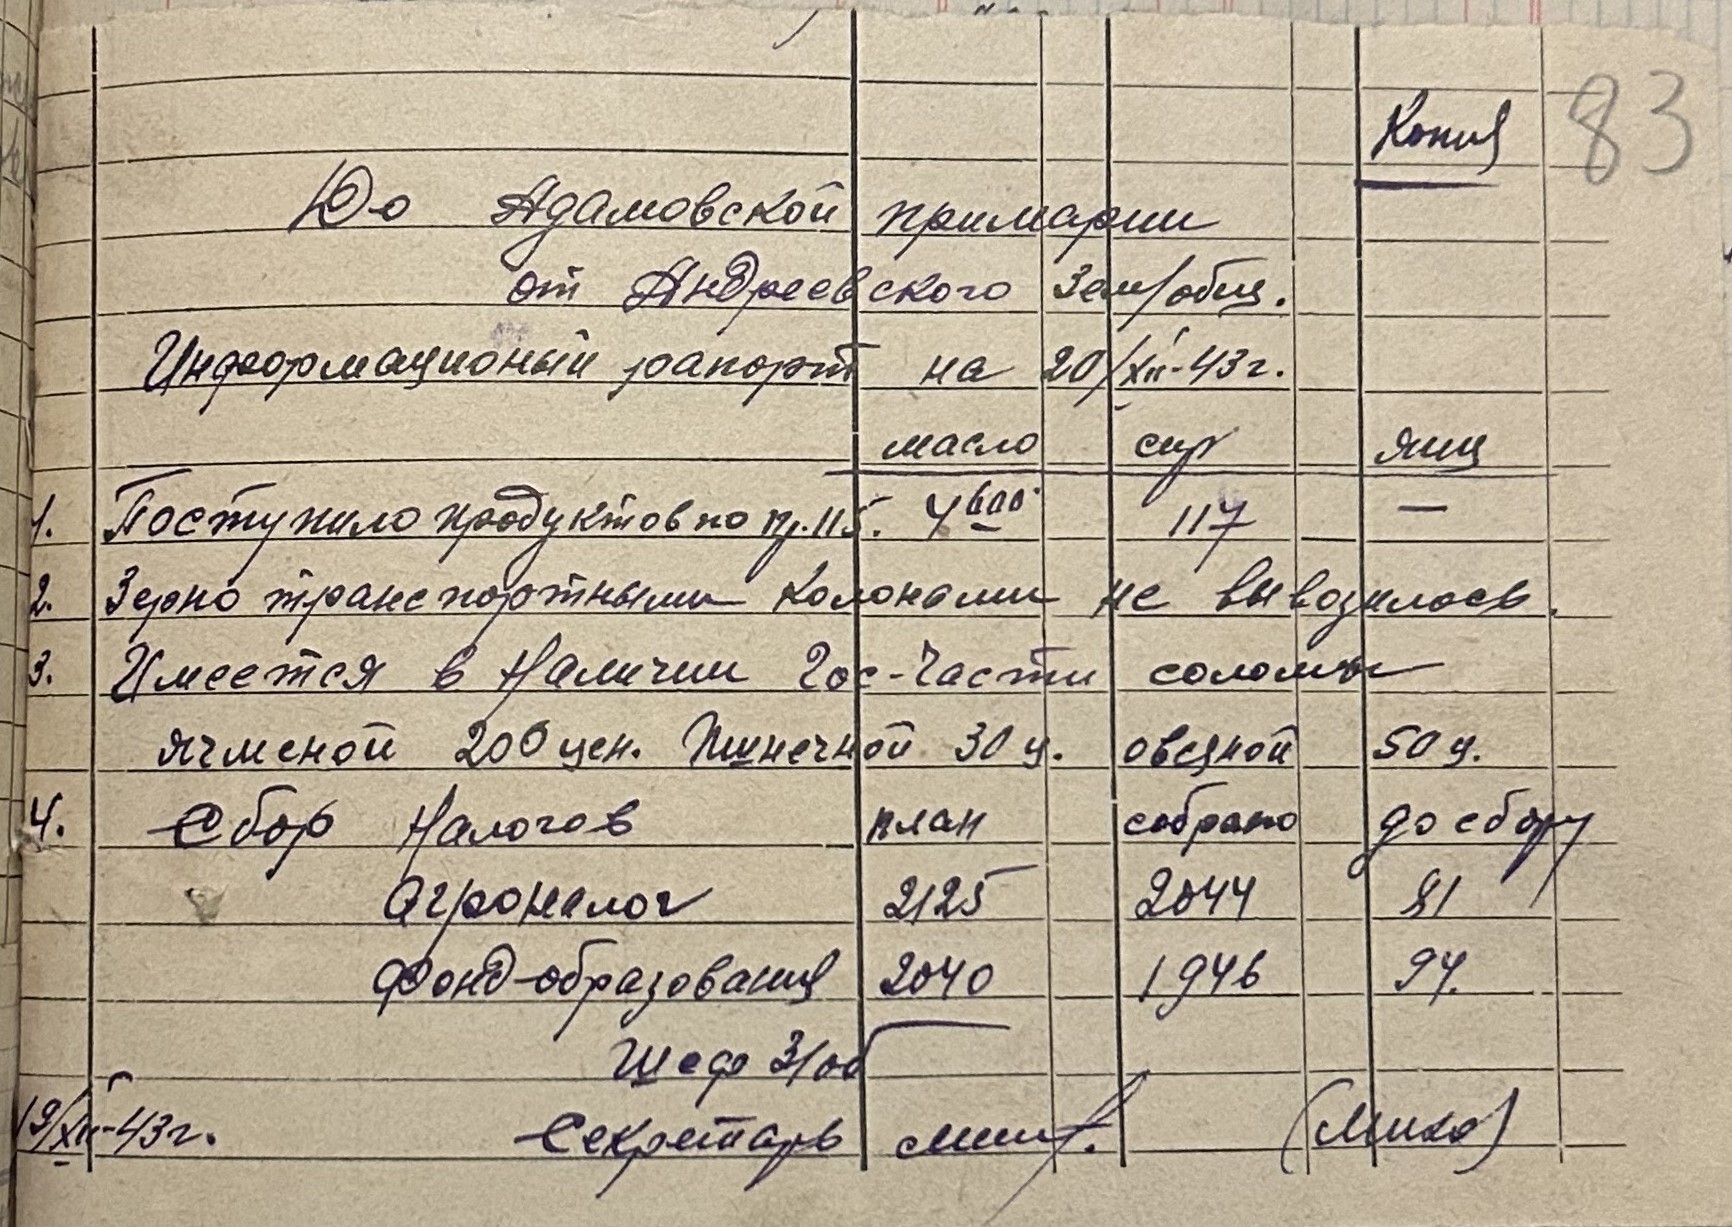 83
Копия
До Адамовской примарии
от Андреевского Зем/общ.
Информационый рапорт на 20/XII-43 г.
масло сыр яиц
1. Поступило продуктов по пр. 115. 4600 117 —
2. Зерно транспортными колонами не вывозилось.
3. Имеется в Наличии Гос-Части соломы
ячменой 200 цен. Пшнечной 30 ц. овсяной 50 ц.
4. Сбор Налогов план собрано до сбору
Агроналог 2125 2044 81
Фонд-образования 2040 1946 94.
Шеф З/об
19/XII-43 г. Секретарь